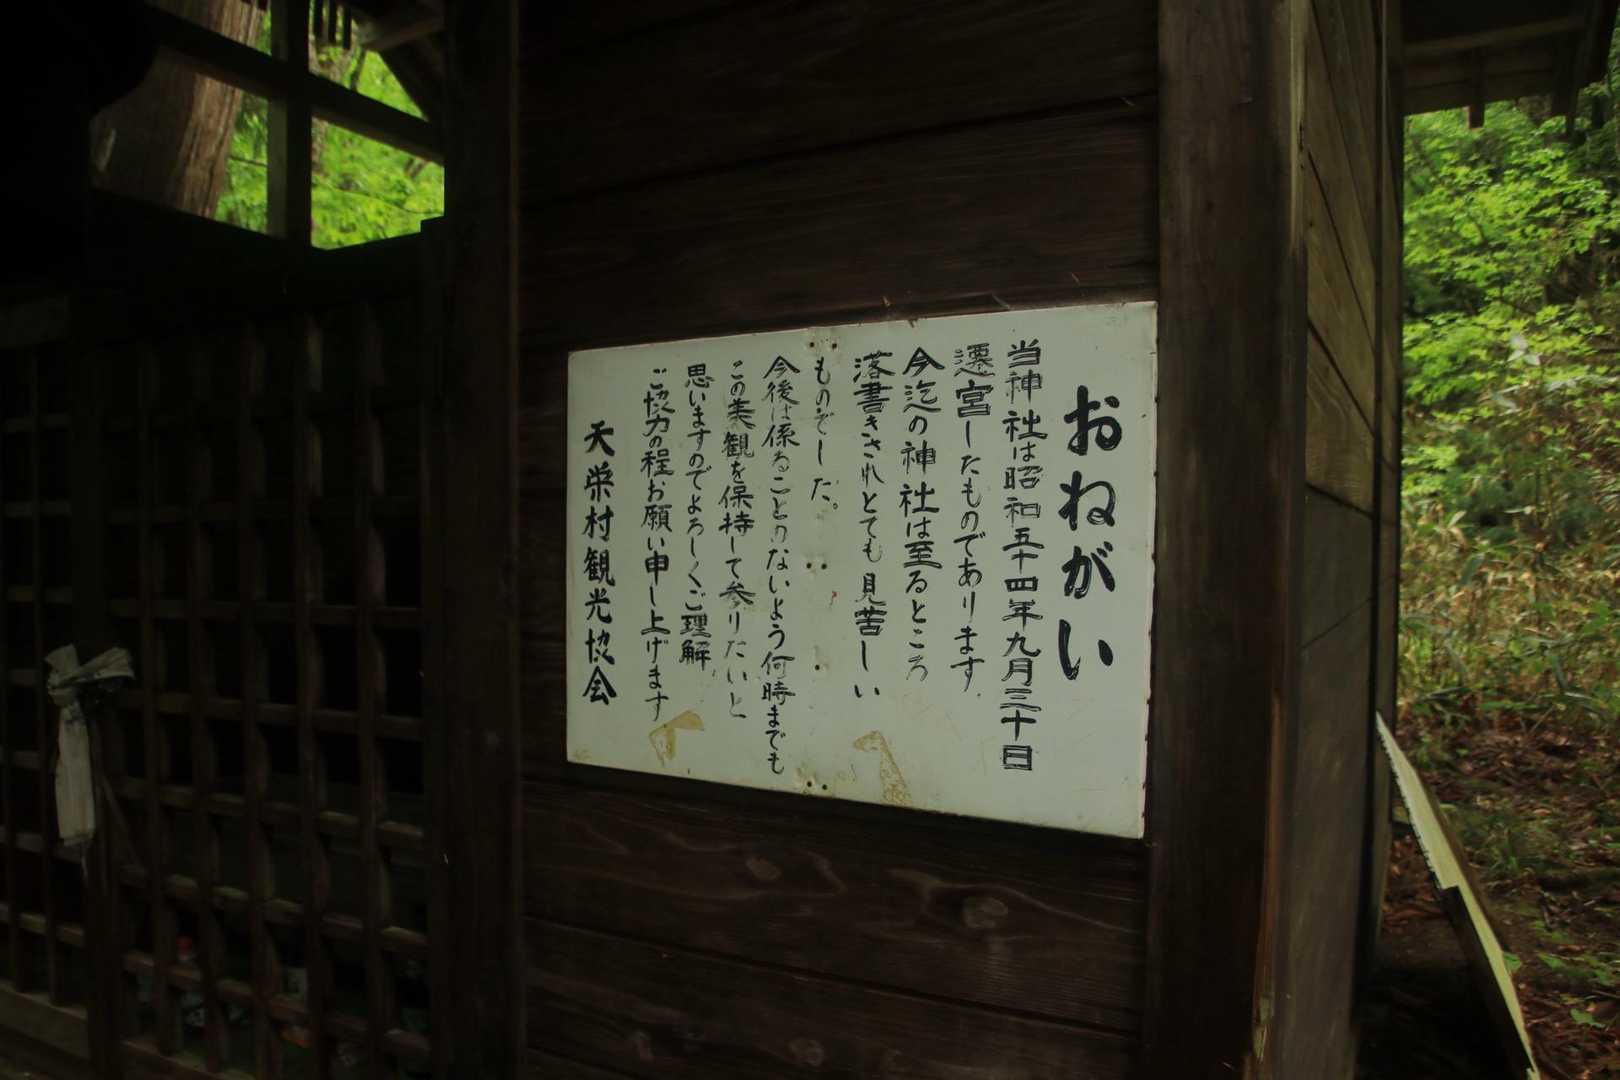 おねがい
当神社は昭和五十四年九月三十日
遷宮したものであります。
今迄の神社は至るところ
落書きされとても見苦しい
ものでした。
今後は係ることのないよう何時までも
この美観を保持して参りたいと
思いますのでよろしくご理解
ご協力の程お願い申し上げます
天栄村観光協会